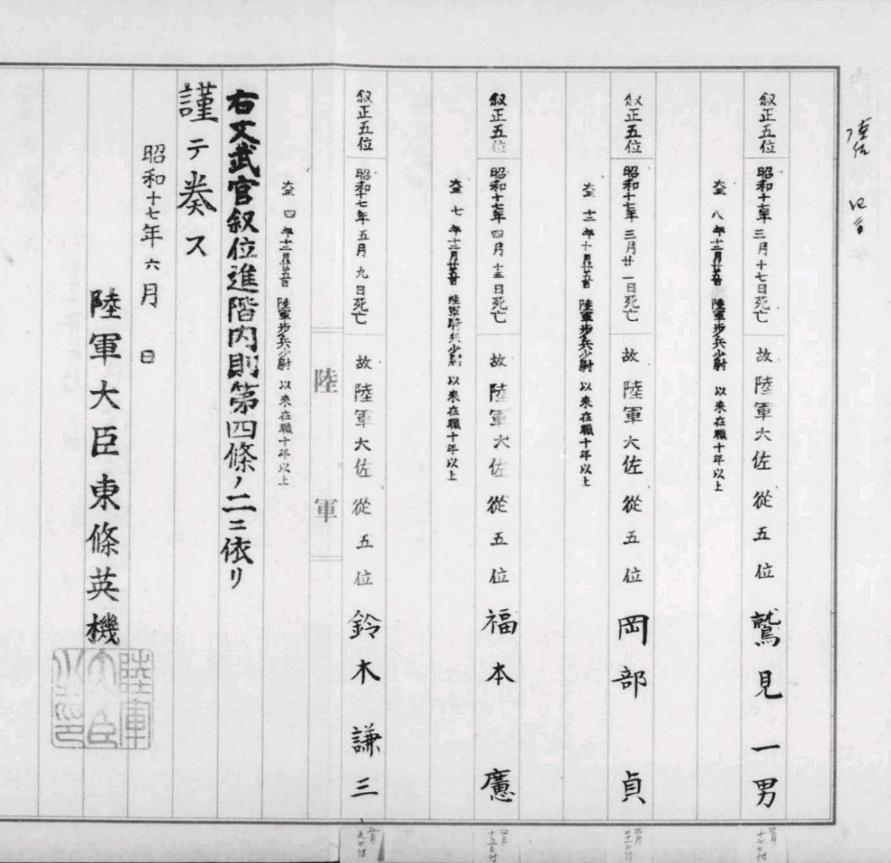 叙正五位 昭和十七年 三月十七日死亡 故陸軍大佐從五位 鷲見一男
大正八年十二月廿五日 陸軍步兵少尉 以来在職十年以上
叙正五位 昭和十七年 三月廿一日死亡 故陸軍大佐從五位 岡部貞
大正十二年十月廿五日 陸軍步兵少尉 以来在職十年以上
叙正五位 昭和十七年 四月十五日死亡 故陸軍大佐從五位 福本
大正七年十二月廿五日 少尉 以来在職十年以上
叙正五位 昭和十七年五月九日死亡 故陸軍大佐從五位 鈴木謙三
大正四年十二月廿五日 陸軍步兵少尉 以来在職十年以上
陸軍
右文武官叙位進階内則第四條ノ二ニ依リ
謹テ奏ス
昭和十七年六月 日
陸軍大臣東條英機
陸軍大臣之印